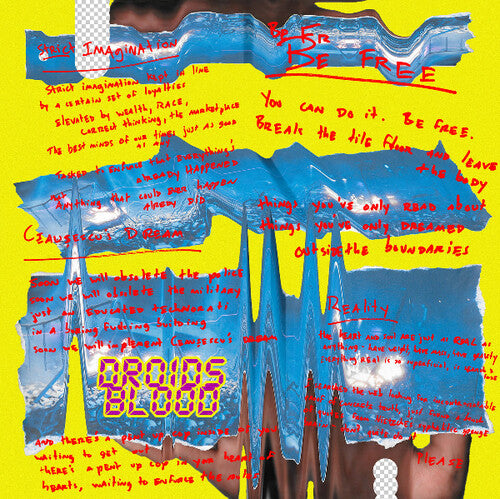 Strict Imagination
Strict imagination kept in line
by a certain set of loyalties
Elevated by wealth, race,
correct thinking, the marketplace
The best minds of our times just as good
as any
Tasked to enforce that everything's
already happened
not anything that could ever happen
already did
Ceaușescu's Dream
Soon we will obsolete the police
soon we will obsolete the military
just an educated technorati
in a boring fucking building
soon we will implement Ceaușescu's dream
DROIDS
BLOOD
And there's a pent up cop inside of you
waiting to get out
there's a pent up cop in your heart of
hearts, waiting to enforce the rules
Be Fr
Be Free
You can do it. Be free.
Break the tile floor and leave
the body
things you've only read about
things you've only dreamed
outside the boundaries
Reality
the heart and soul are just as real as
anything - have weight, have mass, have gravity
everything real is so
the web
just
Please